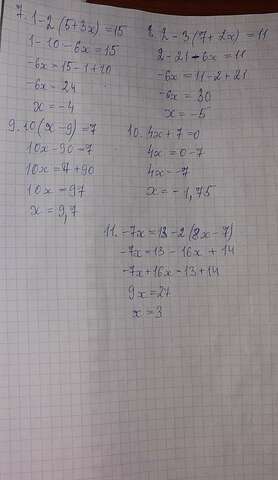 7. 1-2(5+3x)=15
1-10-6x=15
-6x=15-1+10
-6x=24
x=-4
8. 2-3(7+2x)=11
2-21-6x=11
-6x=11-2+21
-6x=30
x=-5
9. 10(x-9)=7
10x-90=7
10x=7+90
10x=97
x=9,7
10. 4x+7=0
4x=0-7
4x=-7
x=-1,75
11. -7x=13-2(8x-7)
-7x=13-16x+14
-7x+16x=13+14
9x=27
x=3